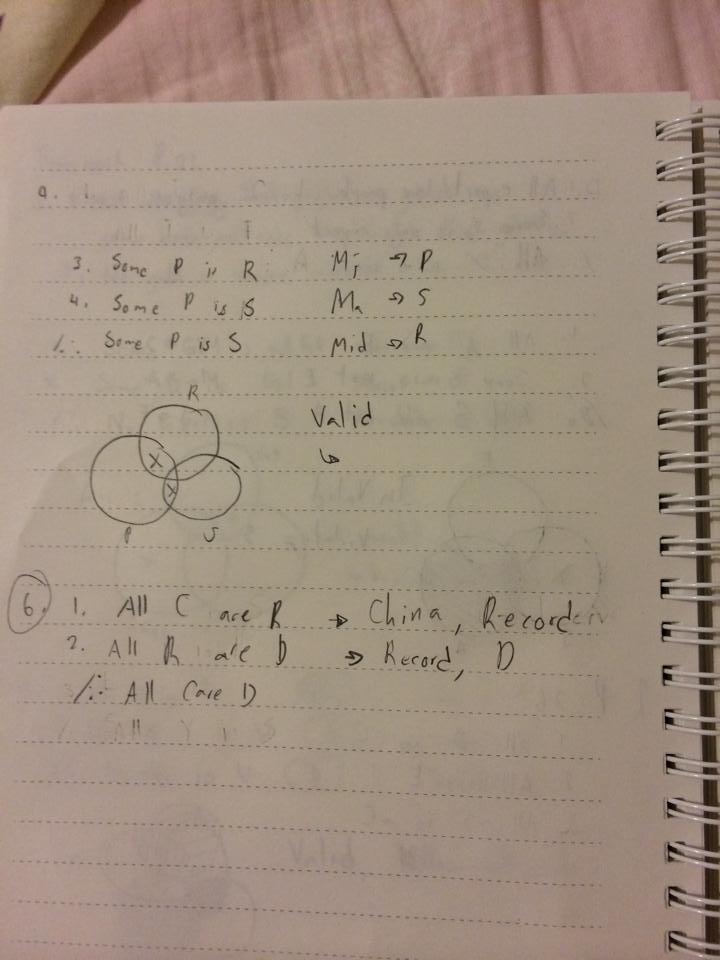 a. 1
3. Some P is R Mj → P
4. Some P is S Ma → S
/∴ Some P is S Mid → R
R
Valid
↳
X
X
P S
6. 1. All C are R → China, Record
2. All R are D → Record, D
/∴ All C are D
All